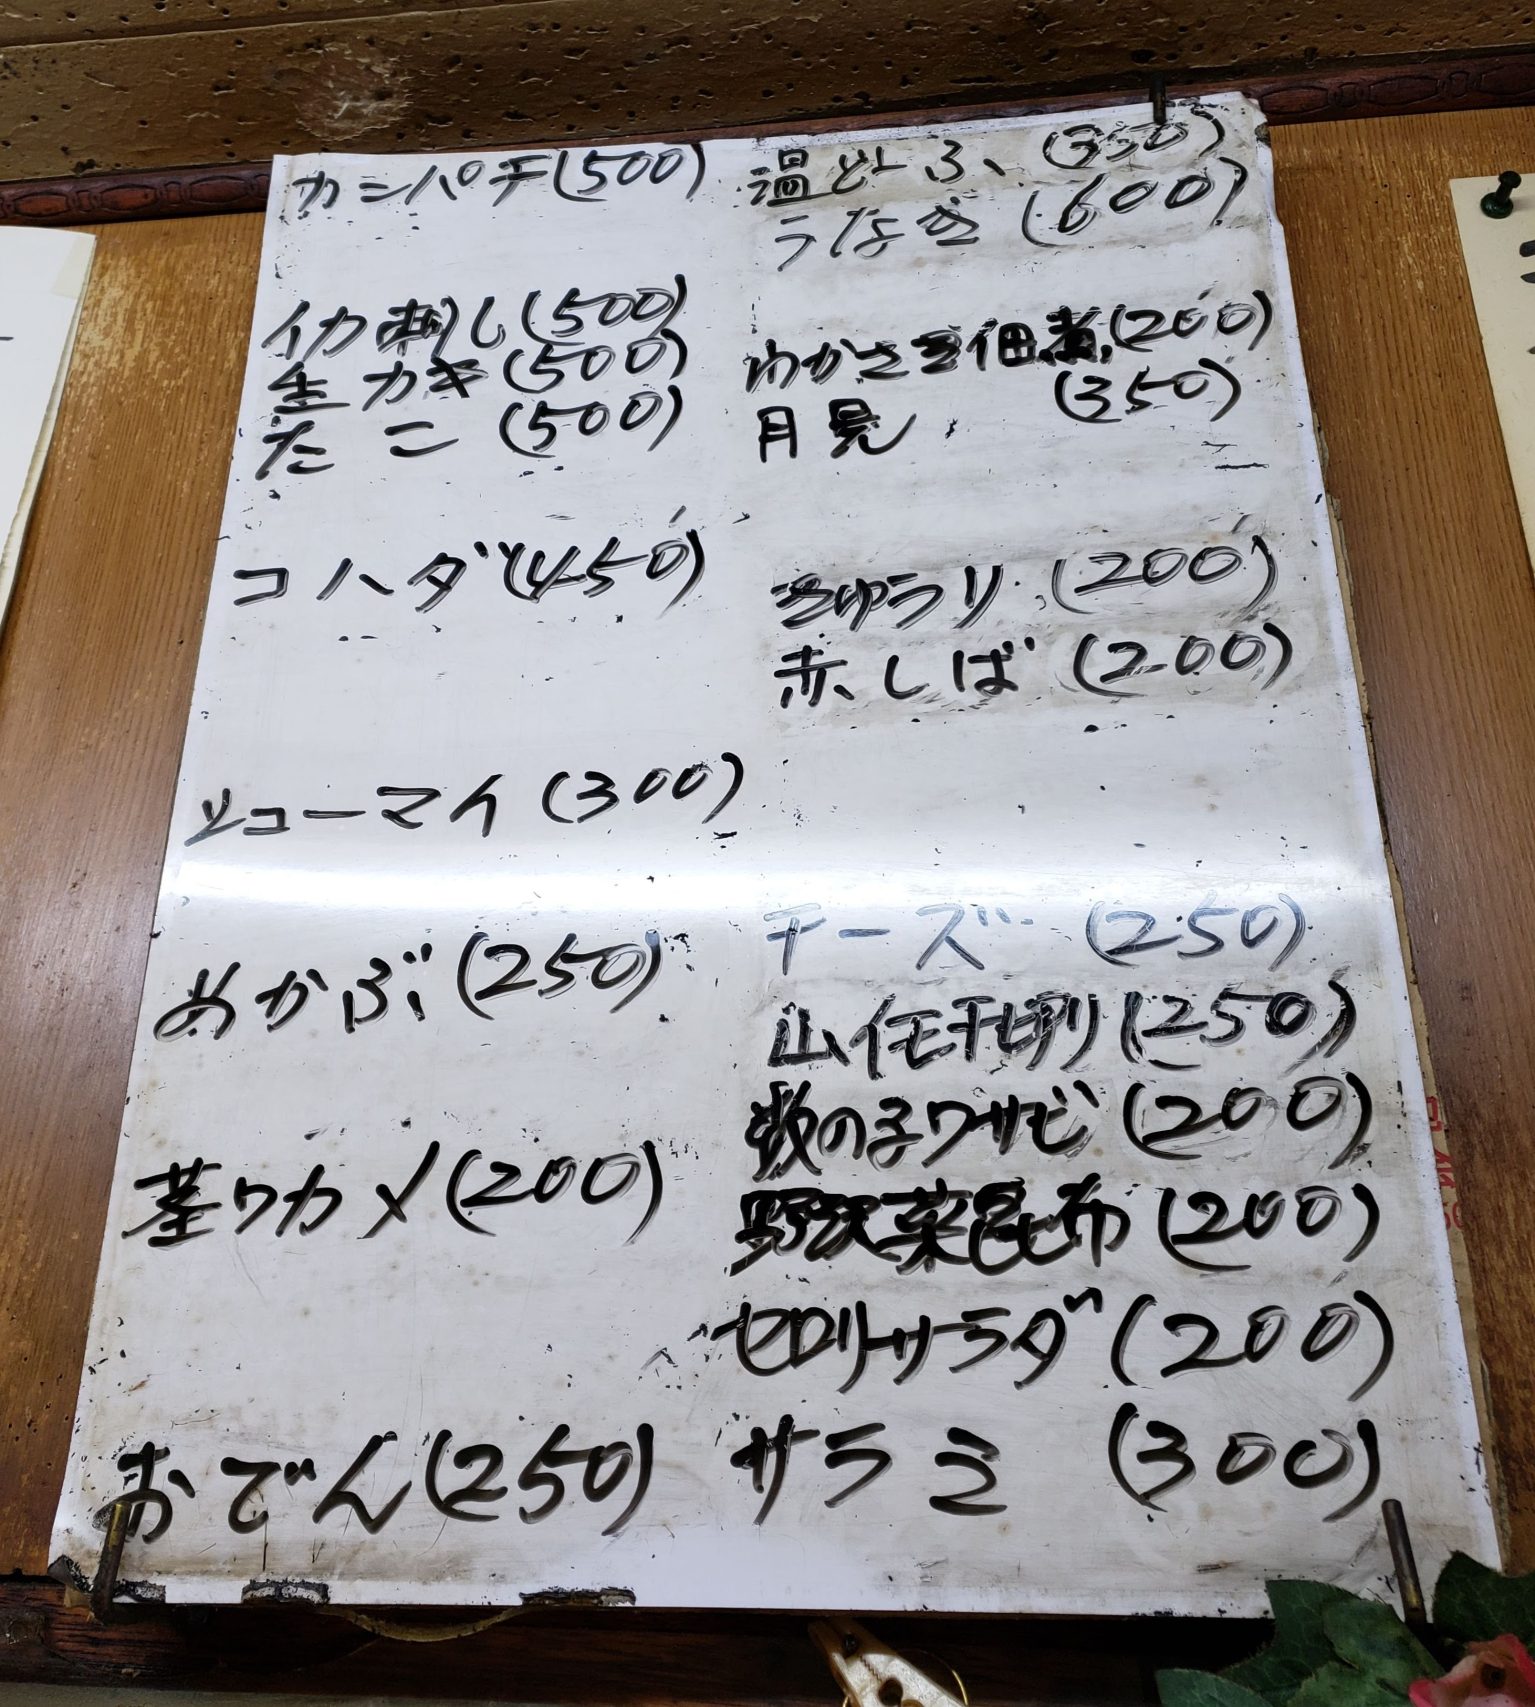 カンパチ(500)
イカ刺し(500)
生カキ(500)
たこ(500)
コハダ(450)
シューマイ(300)
めかぶ(250)
茎ワカメ(200)
おでん(250)
温どーふ(350)
うなぎ(600)
わかさぎ佃煮(200)
月見(350)
きゅうり(200)
赤しば(200)
チーズ(250)
山イモ千切り(250)
数の子ワサビ(200)
野沢菜昆布(200)
セロリーサラダ(200)
サラミ(300)